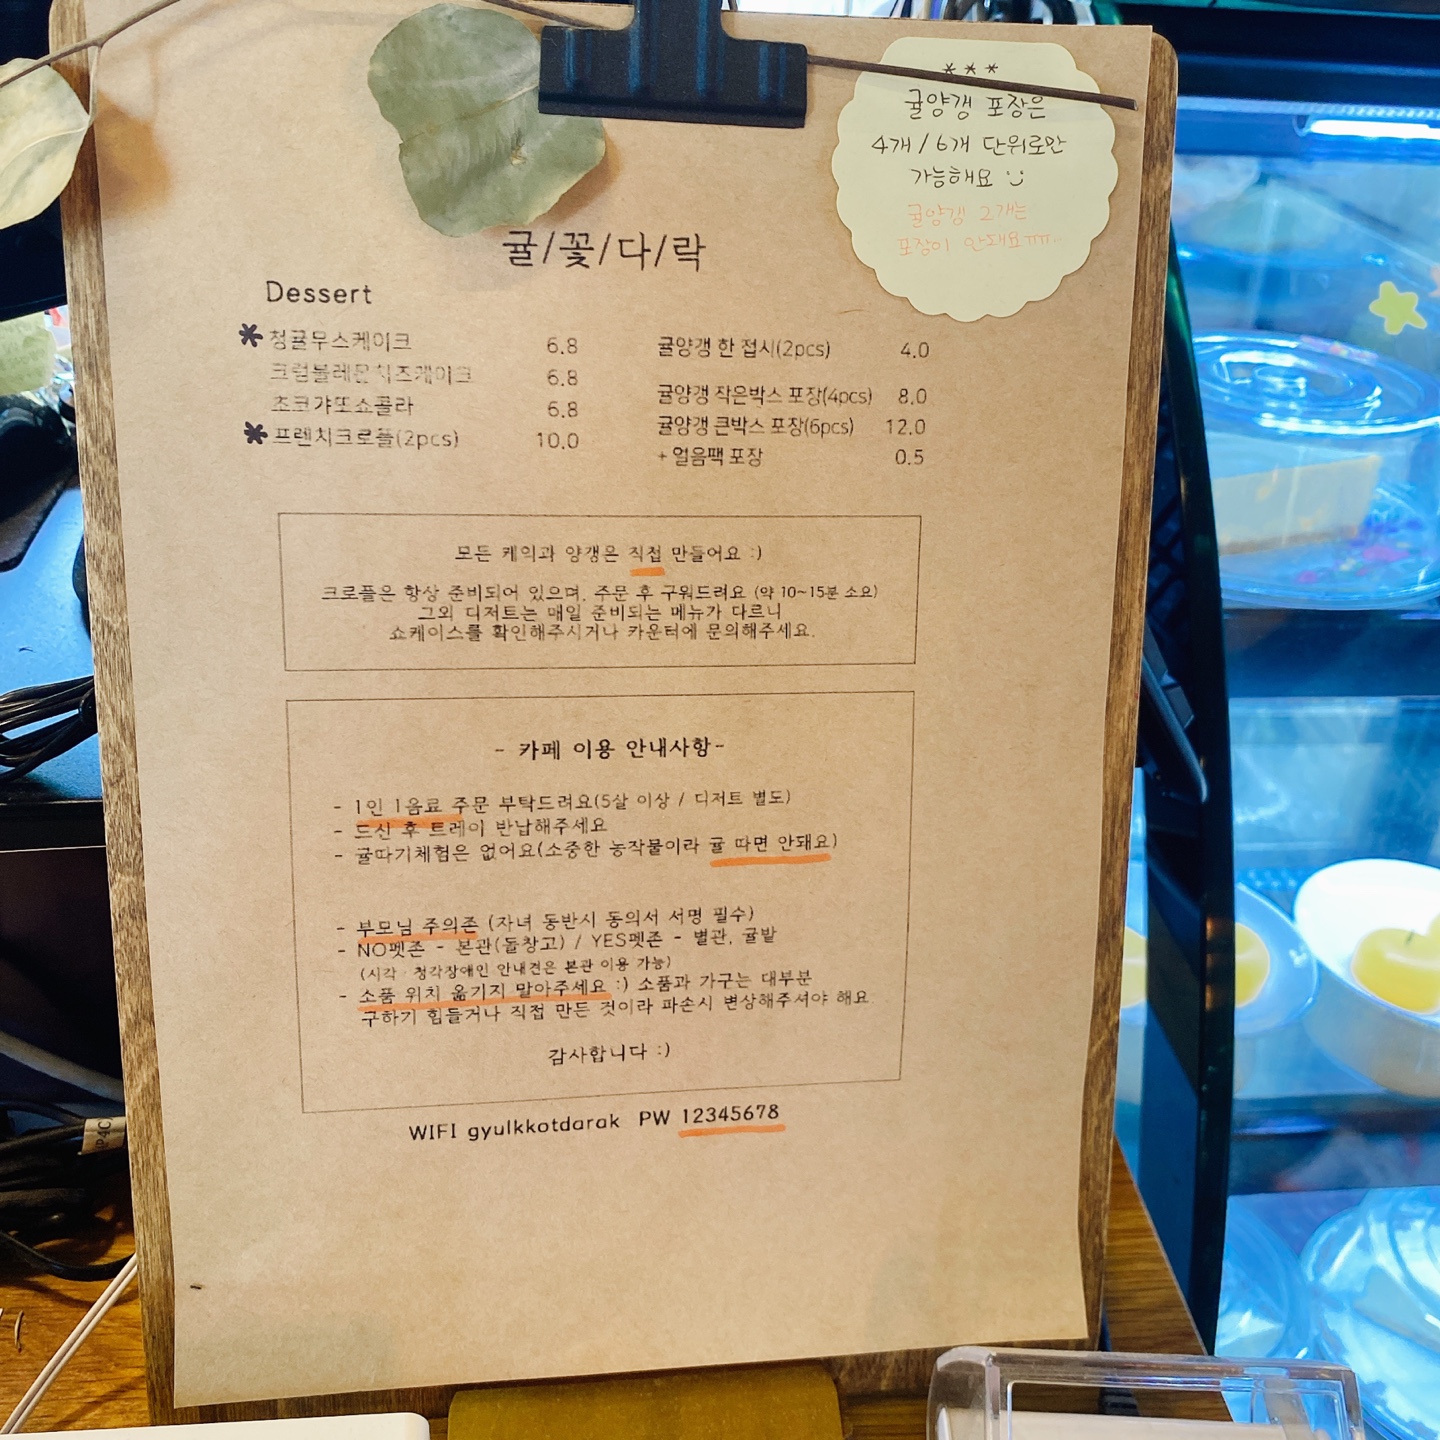 ***
귤양갱 포장은
4개 / 6개 단위로만
가능해요 :)
귤양갱 2개는
포장이 안돼요ㅠㅠ..
귤/꽃/다/락
Dessert
* 청귤무스케이크 6.8
크럼블레몬치즈케이크 6.8
쵸코갸또쇼콜라 6.8
* 프렌치크로플(2pcs) 10.0
귤양갱 한 접시(2pcs) 4.0
귤양갱 작은박스 포장(4pcs) 8.0
귤양갱 큰박스 포장(6pcs) 12.0
+ 얼음팩 포장 0.5
모든 케익과 양갱은 직접 만들어요 :)
크로플은 항상 준비되어 있으며, 주문 후 구워드려요 (약 10~15분 소요)
그외 디저트는 매일 준비되는 메뉴가 다르니
쇼케이스를 확인해주시거나 카운터에 문의해주세요.
- 카페 이용 안내사항-
- 1인 1음료 주문 부탁드려요(5살 이상 / 디저트 별도)
- 드신 후 트레이 반납해주세요
- 귤따기체험은 없어요(소중한 농작물이라 귤 따면 안돼요)
- 부모님 주의존 (자녀 동반시 동의서 서명 필수)
- NO펫존 - 본관(돌창고) / YES펫존 - 별관, 귤밭
(시각·청각장애인 안내견은 본관 이용 가능)
- 소품 위치 옮기지 말아주세요 :) 소품과 가구는 대부분
구하기 힘들거나 직접 만든 것이라 파손시 변상해주셔야 해요
감사합니다 :)
WIFI gyulkkotdarak PW 12345678